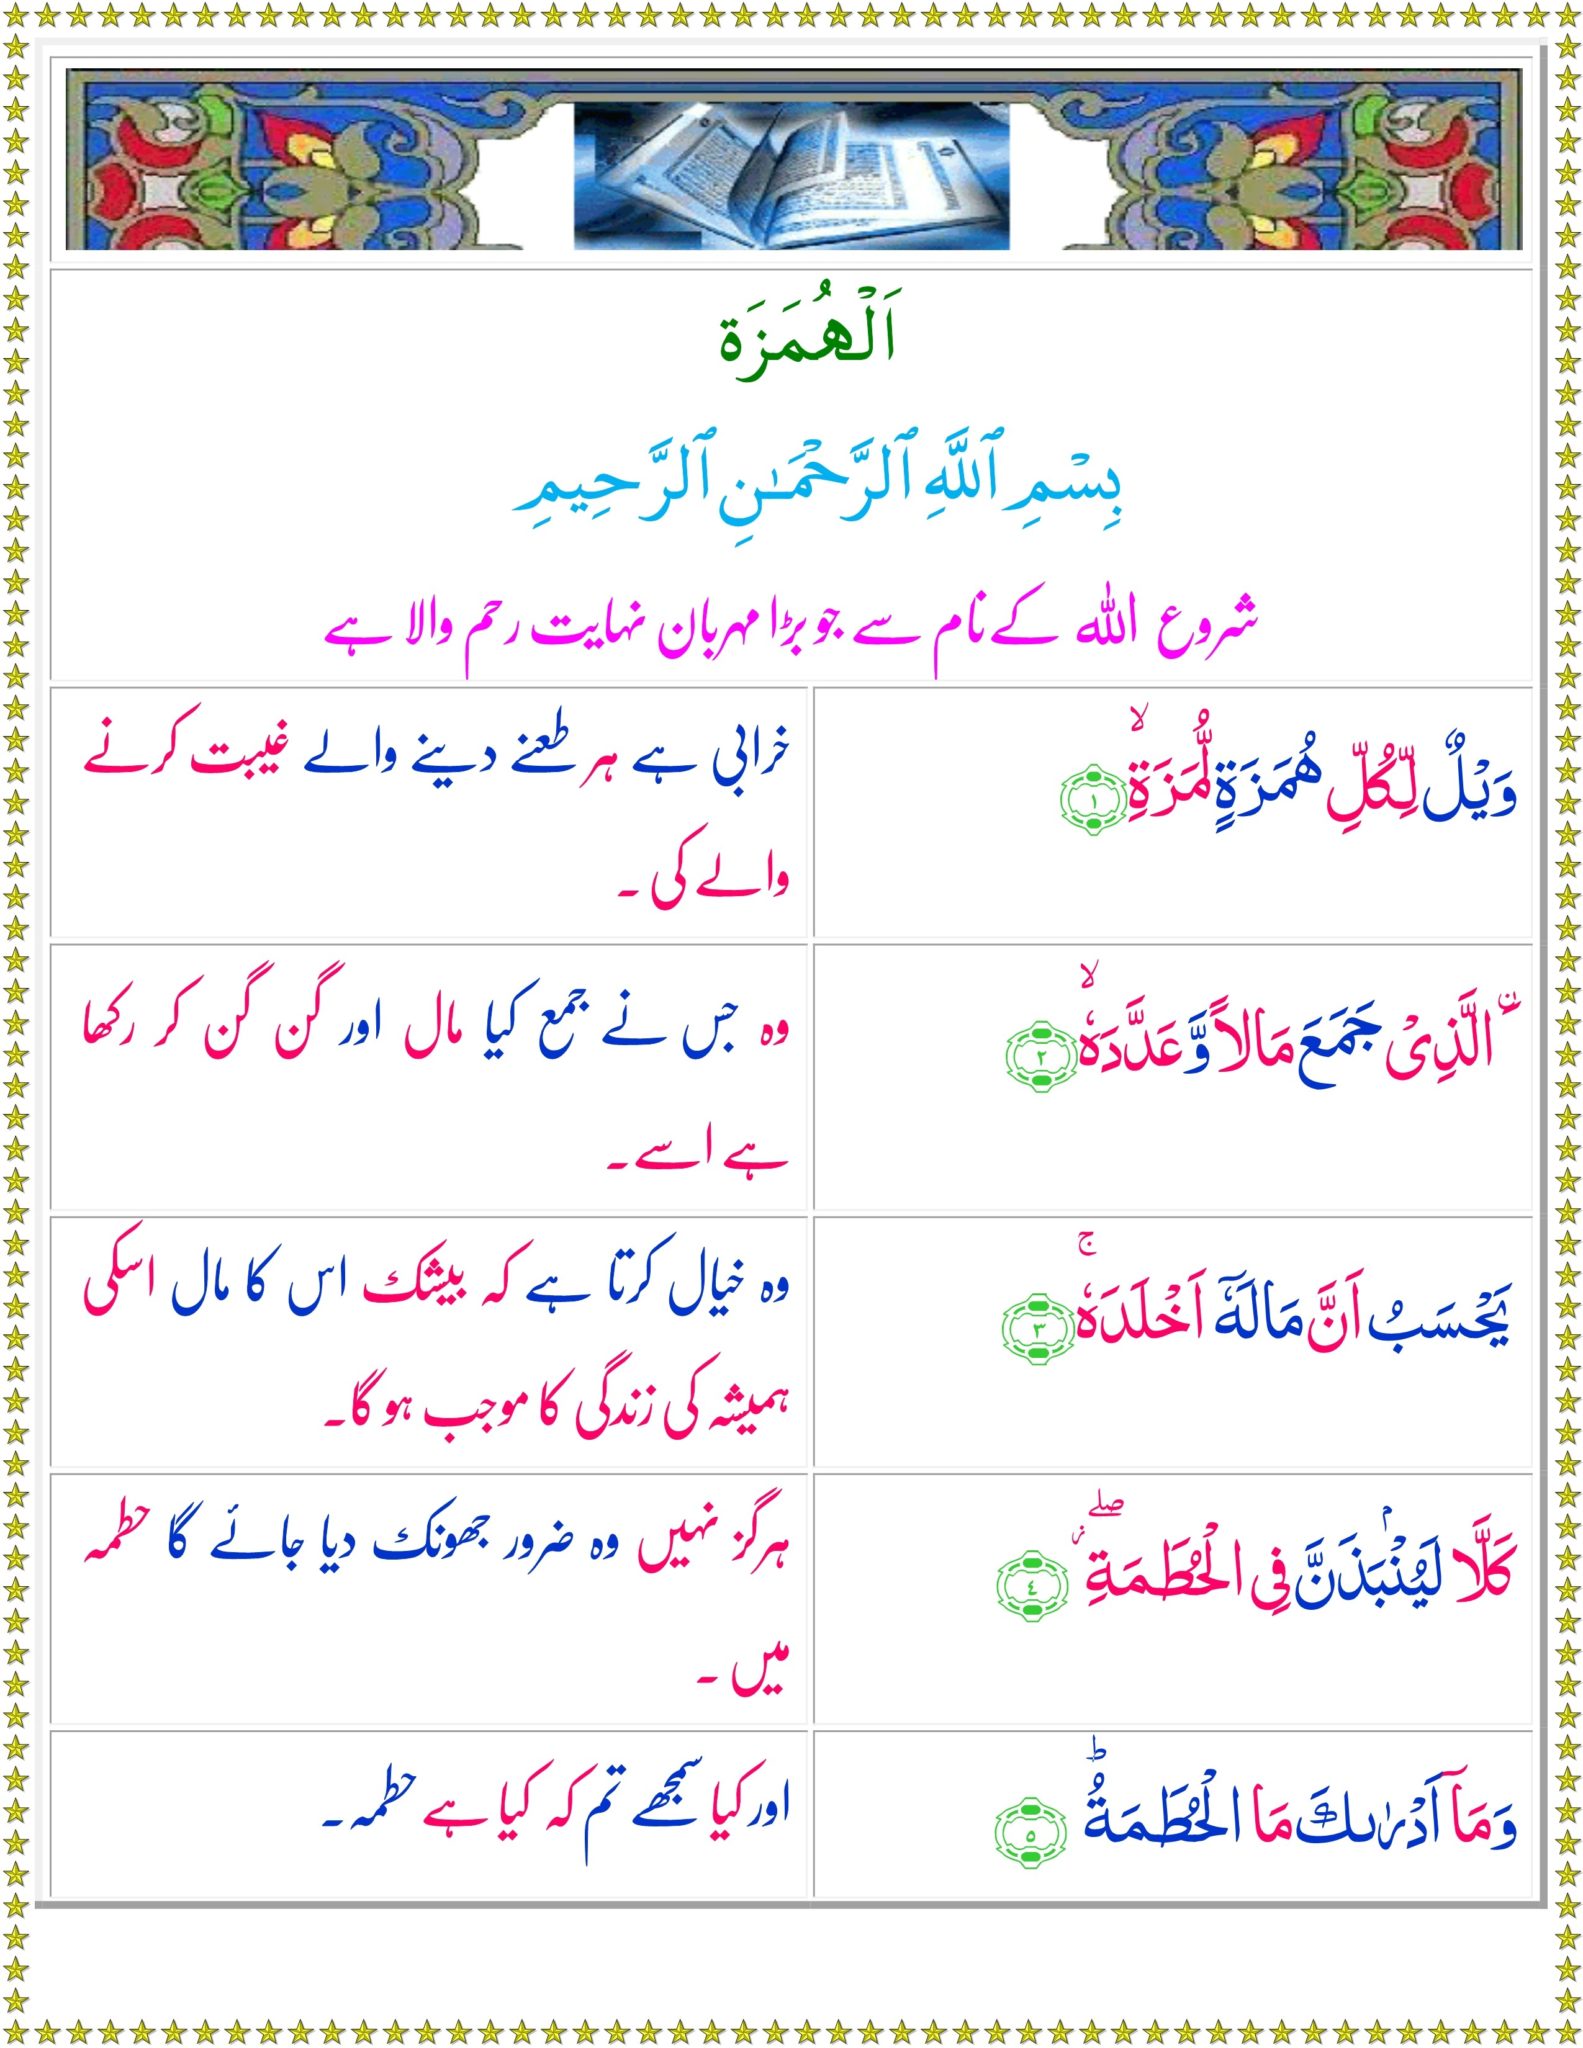 اَلْهُمَزَة
بِسْمِ ٱللَّهِ ٱلرَّحْمَـٰنِ ٱلرَّحِيمِ
شروع اللہ کے نام سے جو بڑا مہربان نہایت رحم والا ہے
وَيْلٌ لِّكُلِّ هُمَزَةٍ لُّمَزَةِۙ ﴿١﴾
خرابی ہے ہر طعنے دینے والے غیبت کرنے
والے کی ۔
۟الَّذِىْ جَمَعَ مَالاً وَّ عَدَّدَهٗۙ ﴿٢﴾
وہ جس نے جمع کیا مال اور گن گن کر رکھا
ہے اسے۔
يَحْسَبُ اَنَّ مَالَهٗۤ اَخْلَدَهٗۚ ﴿٣﴾
وہ خیال کرتا ہے کہ بیشک اس کا مال اسکی
ہمیشہ کی زندگی کا موجب ہو گا۔
كَلَّا لَيُنْۢبَذَنَّ فِى الْحُطَمَةِۖ ﴿٤﴾
ہرگز نہیں وہ ضرور جھونک دیا جائے گا حطمہ
میں ۔
وَمَاۤ اَدْرٰٮكَ مَا الْحُطَمَةُؕ ﴿٥﴾
اور کیا سمجھے تم کہ کیا ہے حطمہ۔